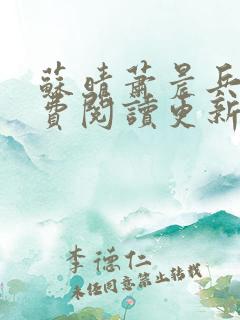 蘇晴蕭晨兵
費閱讀更新
李德仁
未經同意禁止轉載